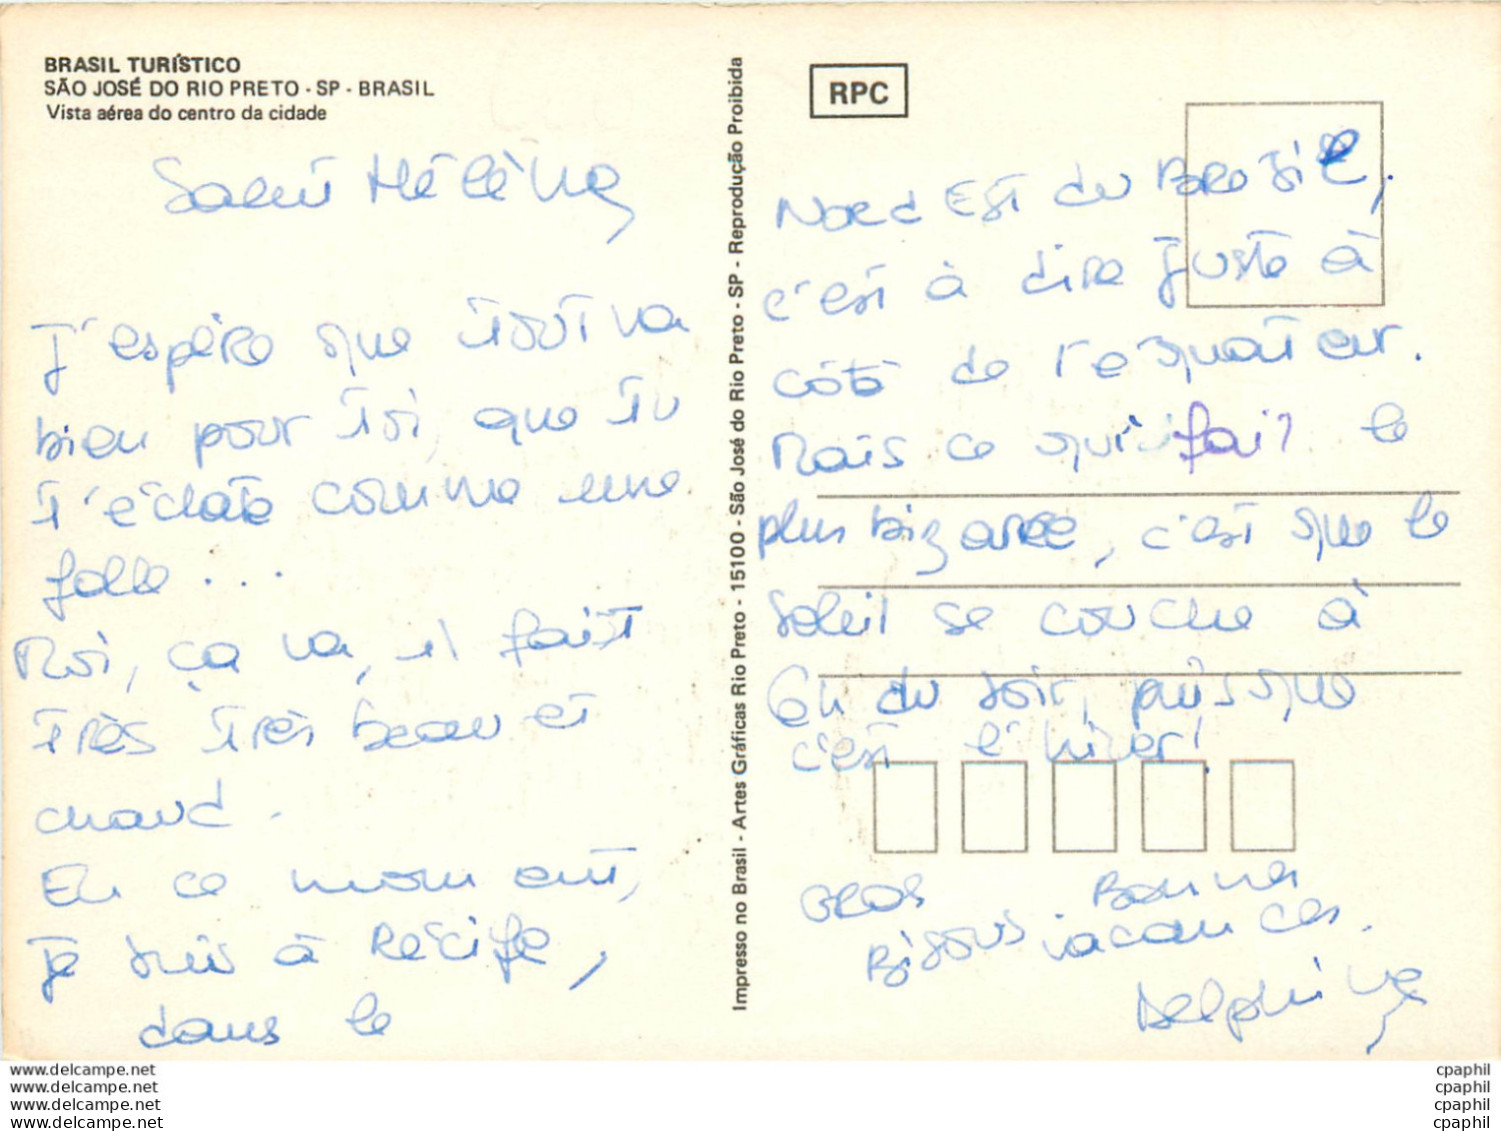 BRASIL TURÍSTICO
SÃO JOSÉ DO RIO PRETO - SP - BRASIL
Vista aérea do centro da cidade
Salut Hélène,
J'espère que tout va
bien pour toi, que tu
t'éclate comme une
folle...
Moi, ça va, il fait
très très beau et
chaud.
En ce moment,
Je suis à Récife,
dans le
Impresso no Brasil - Artes Gráficas Rio Preto - 15100 - São José do Rio Preto - SP - Reprodução Proibida
RPC
Nord Est du Brésil,
c'est à dire juste à
côté de l'équateur.
Mais ce qui fait le
plus bizarre, c'est que le
soleil se couche à
6h du soir, puisque
c'est l'hiver!
Gros
Bisous
Bonnes
vacances.
Delphine
www.delcampe.net
www.delcampe.net
www.delcampe.net
www.delcampe.net
cpaphil
cpaphil
cpaphil
cpaphil